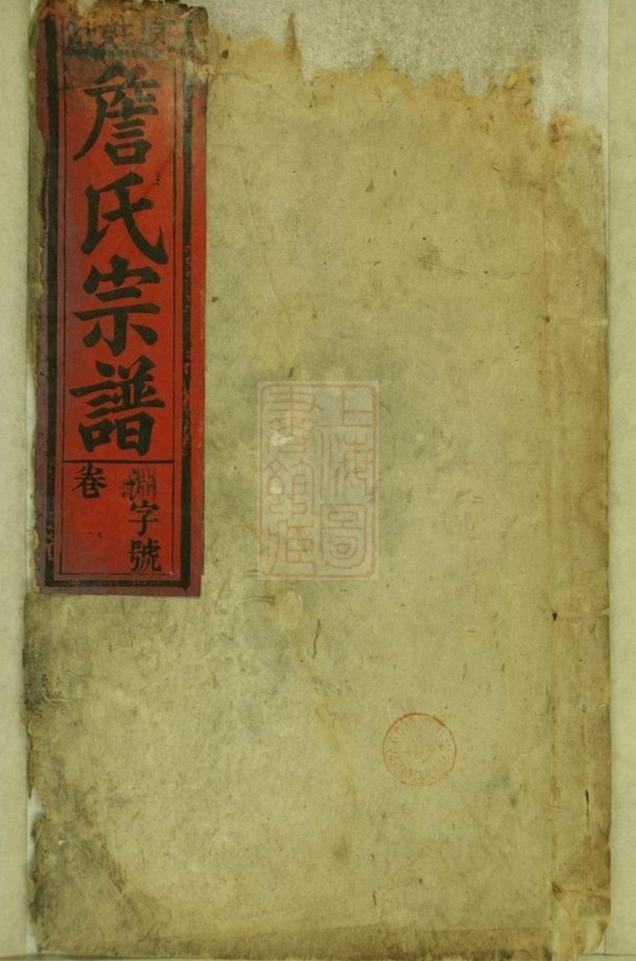 詹氏宗譜
淵字號
卷
上海圖
書館藏